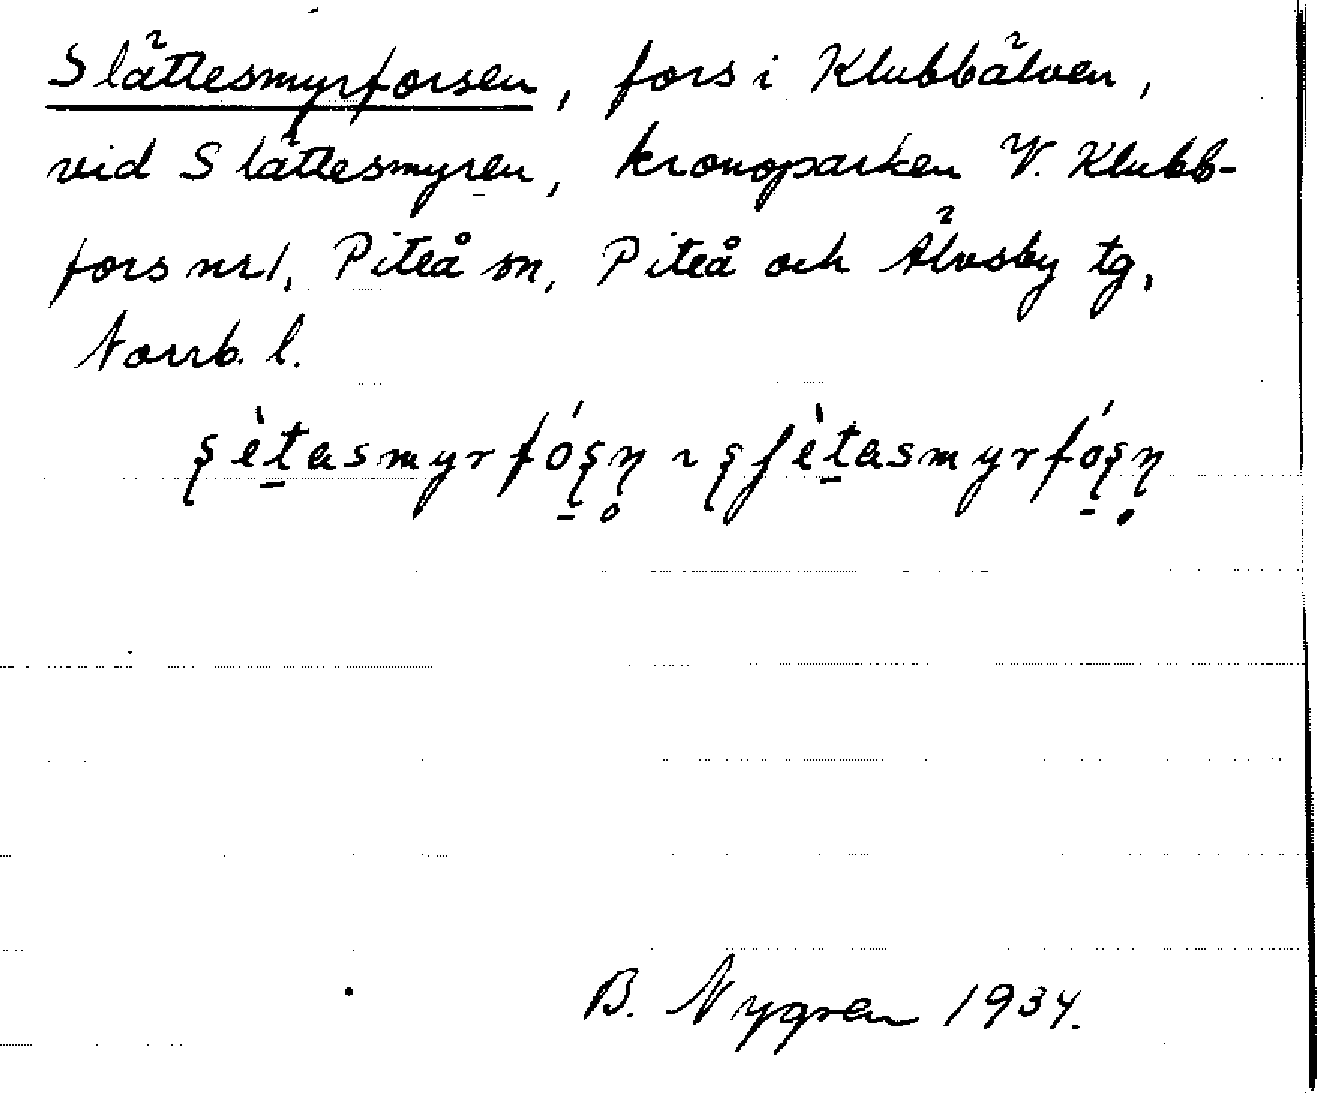 Slättesmyrforsen, fors i Klubbälven,
vid Slättesmyren, kronoparken V. Klubb-
fors nr 1, Piteå sn, Piteå och Älvsby tg,
Norrb. l.
ʂètasmyrfóʂn̥ ~ ʂʃètasmyrfóʂn̥
B. Nygren 1934.